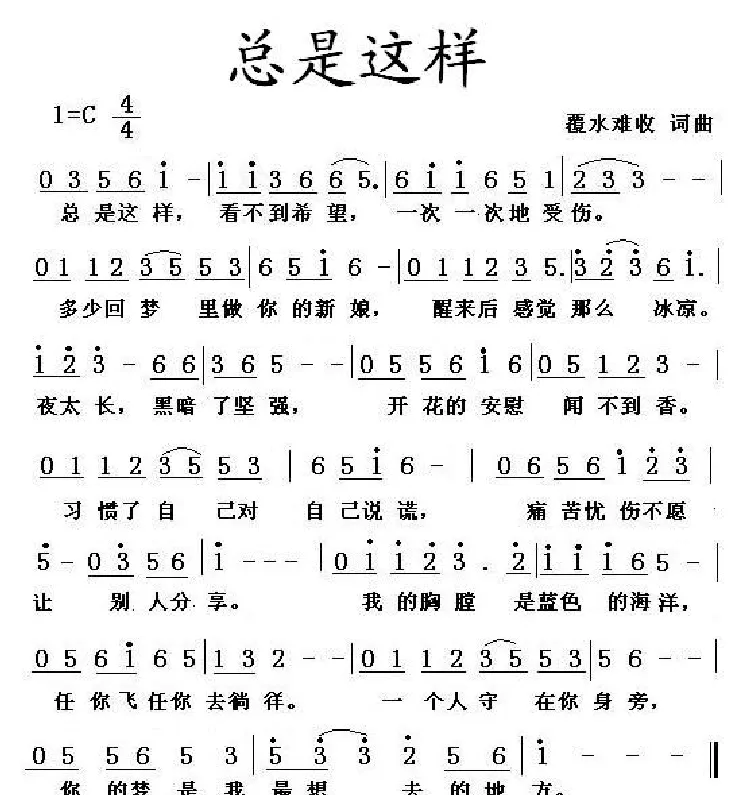 总是这样
1=C 4/4
覆水难收 词曲
0 3 5 6 i - | i i 3 6 6 5. | 6 i i 6 5 1 | 2 3 3 - - |
总 是这 样， 看不到希 望， 一次 一次地 受伤。
0 1 1 2 3 5 5 3 | 6 5 i 6 - | 0 1 1 2 3 5. | 3 2 3 6 i. |
多少回 梦 里做 你 的新 娘， 醒来后 感觉 那么 冰凉。
i 2 3 - 6 6 | 3 6 5 - | 0 5 5 6 i 6 | 0 5 1 2 3 - |
夜太 长， 黑暗 了坚 强， 开 花的 安慰 闻 不到 香。
0 1 1 2 3 5 5 3 | 6 5 i 6 - | 0 6 5 6 i 2 3 |
习 惯了 自 己对 自 己说 谎， 痛 苦忧 伤不愿
5 - 0 3 5 6 | i - - - | 0 i i 2 3 . 2 | i i i 6 5 - |
让 别 人分 享。 我 的胸 膛 是蓝色 的海洋，
0 5 6 i 6 5 | 1 3 2 - | 0 1 1 2 3 5 5 3 | 5 6 - - |
任 你飞任你 去徜 徉。 一 个人 守 在你 身 旁，
0 5 5 6 5 3 5 | 5 3 3 2 5 6 | i - - - ‖
你 的 梦 是 我 最 想 去 的 地 方。